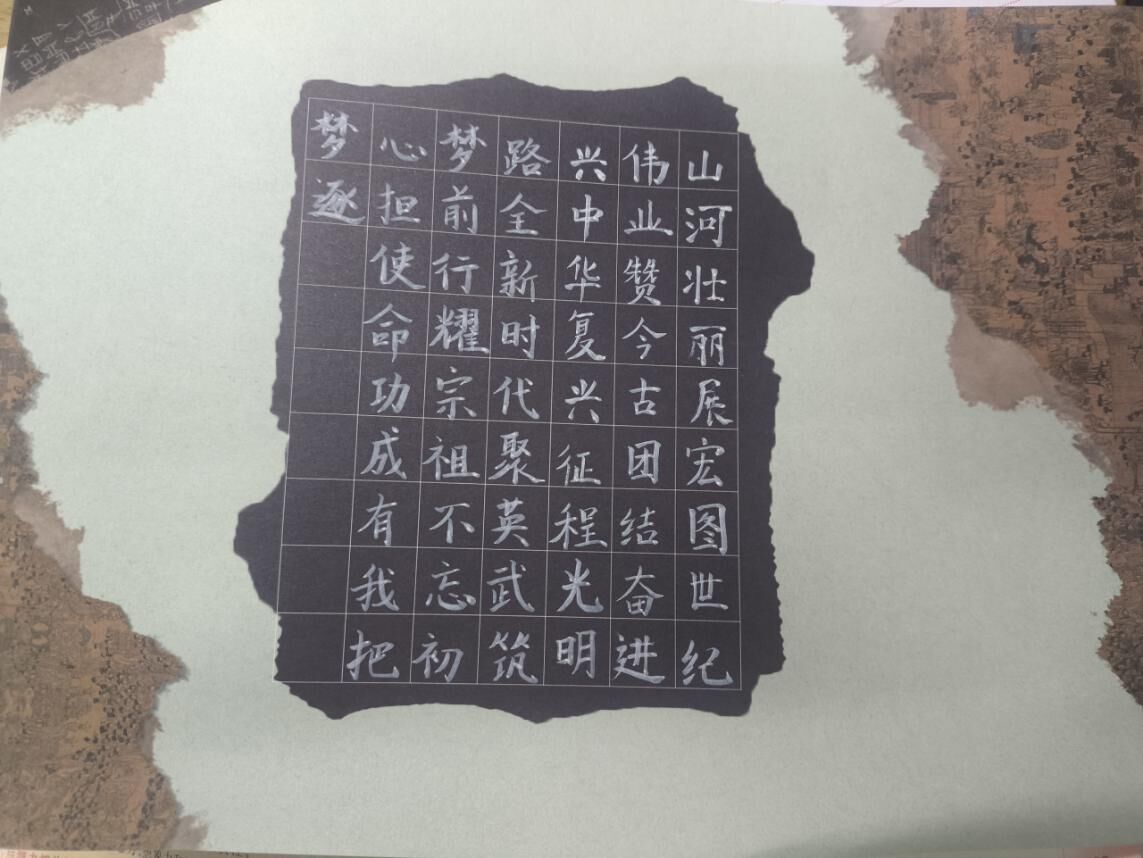 山河壮丽展宏图世纪
伟业赞今古团结奋进
兴中华复兴征程光明
路全新时代聚英武筑
梦前行耀宗祖不忘初
心担使命功成有我把
梦逐